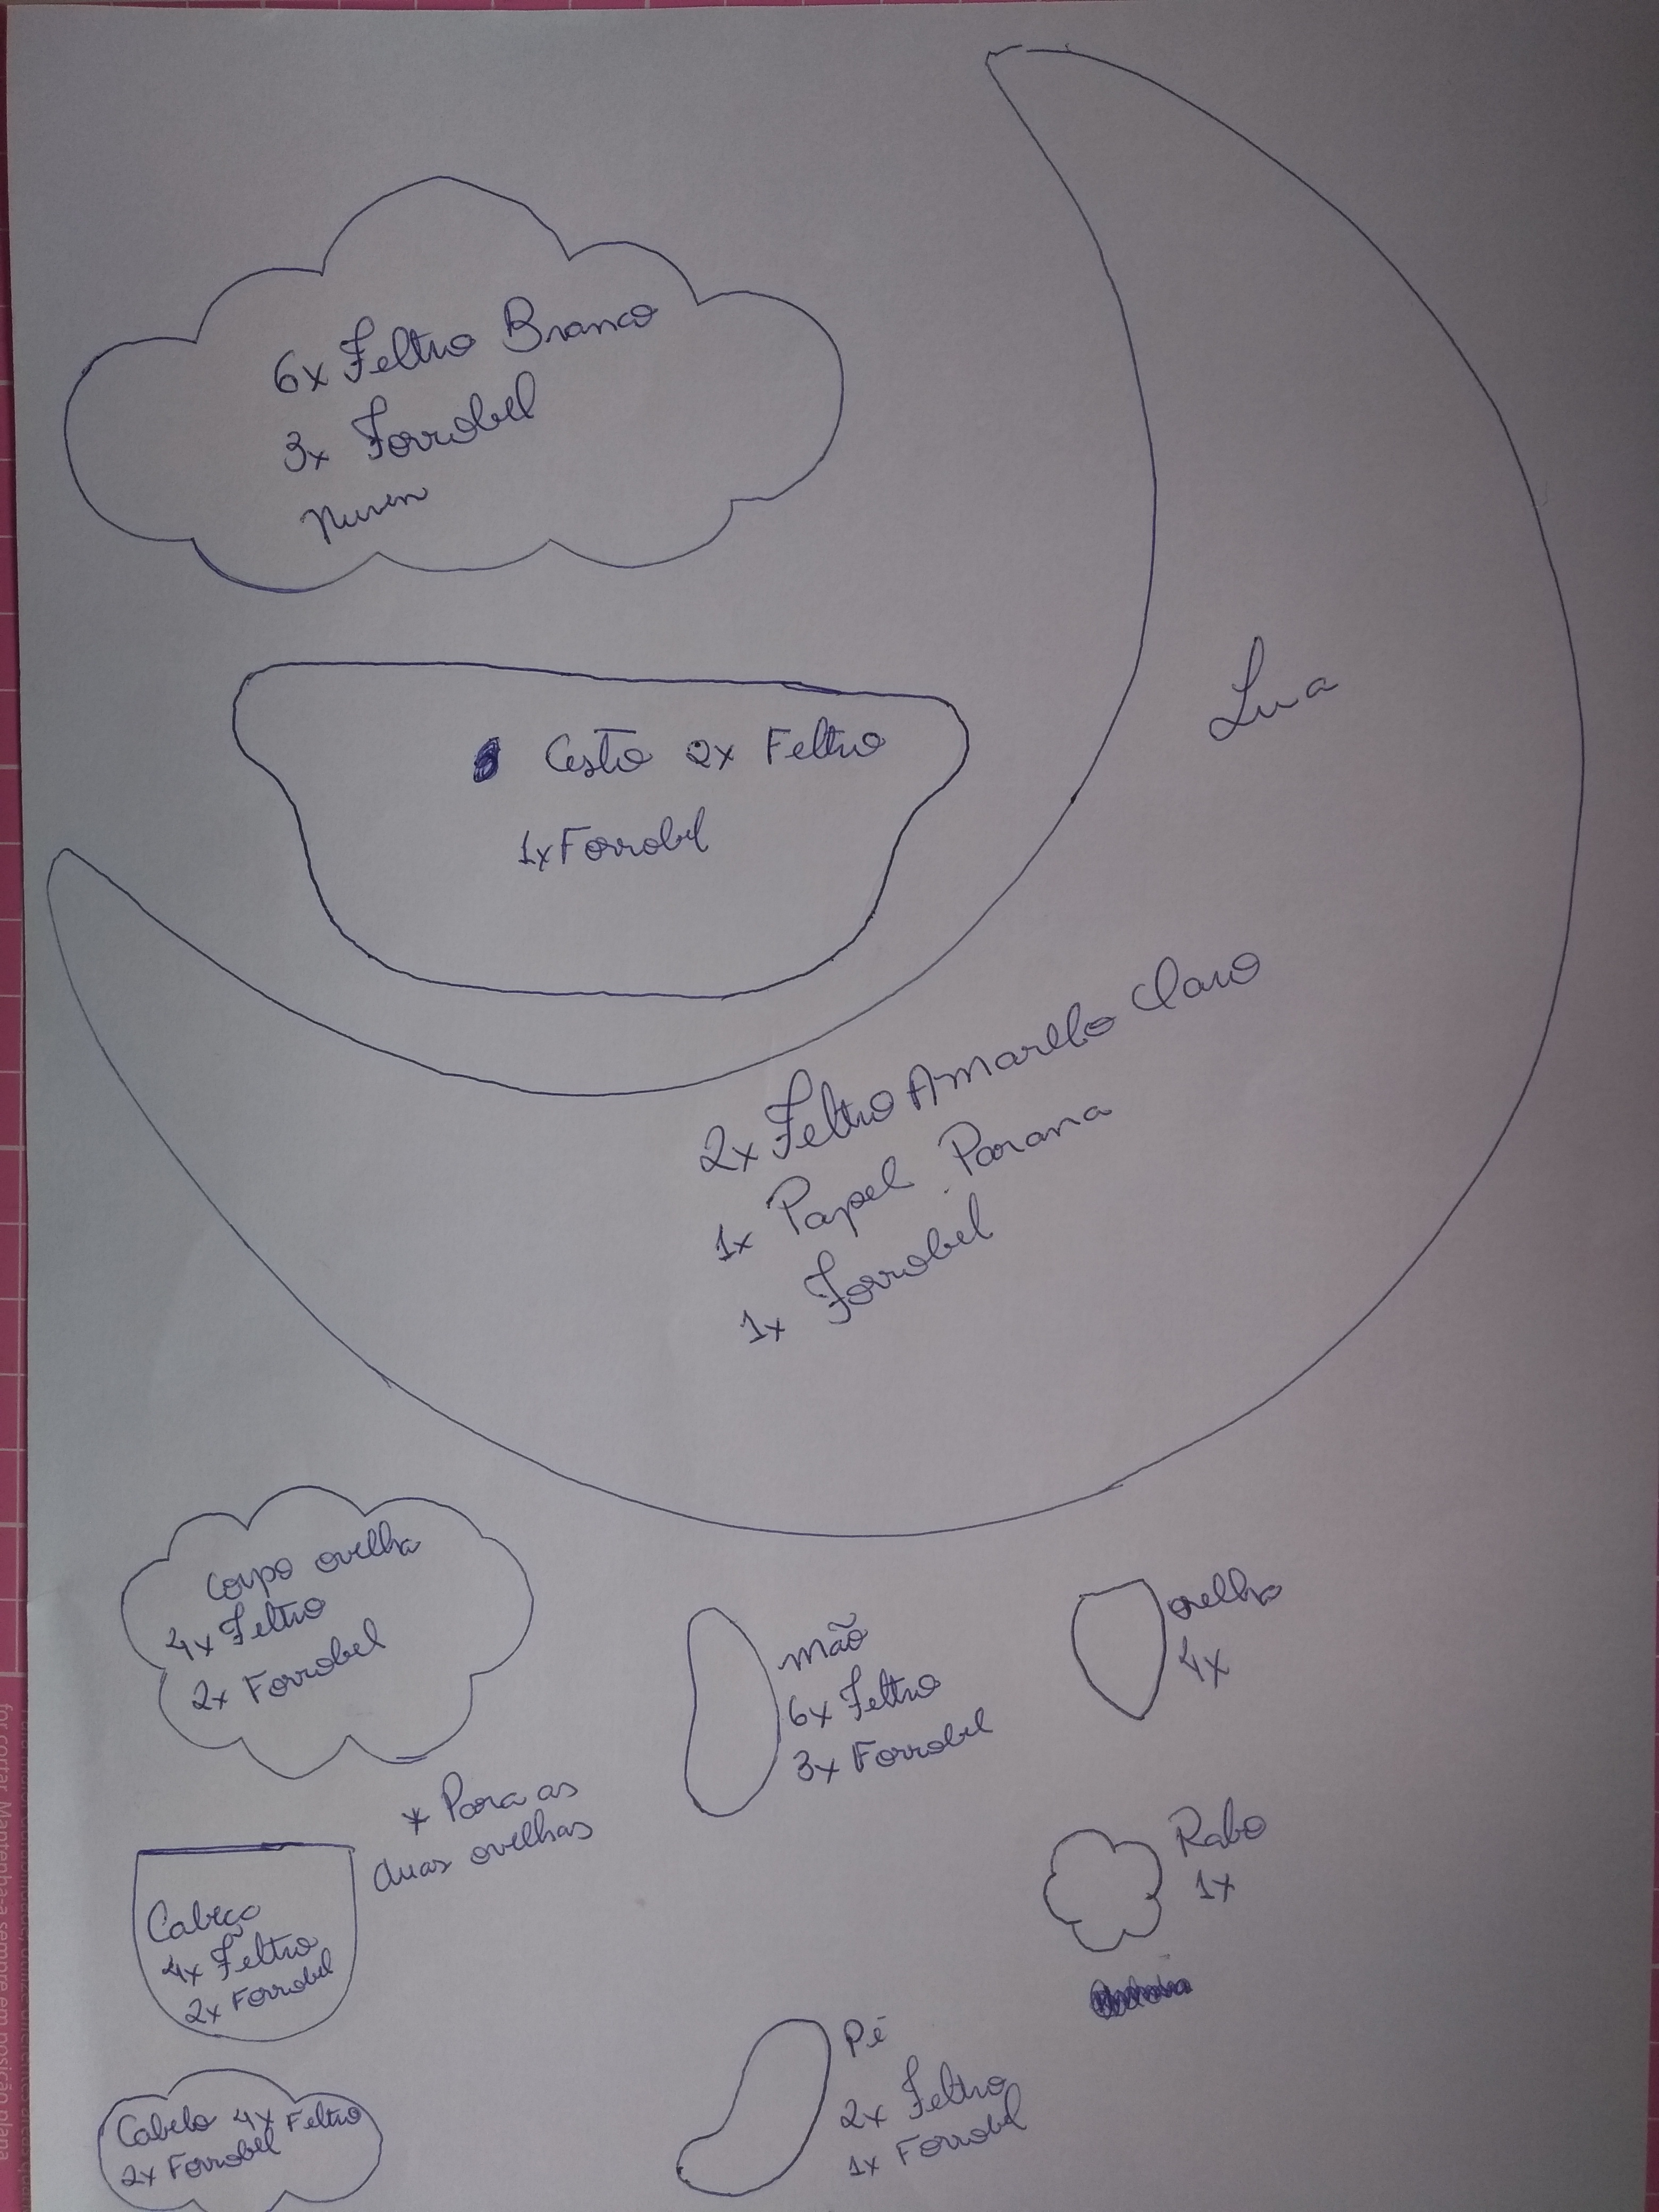 6x Feltro Branco
3x Forrobel
Nuven
Cesto 2x Feltro
1x Forrobel
Lua
2x Feltro Amarelo Claro
1x Papel Parana
1x Forrobel
Corpo ovelha
4x Feltro
2x Forrobel
* Para as
duas ovelhas
mão
6x Feltro
3x Forrobel
orelha
4x
Rabo
1x
Cabeça
4x Feltro
2x Forrobel
Pé
2x Feltro
1x Forrobel
Cabelo 4x Feltro
2x Forrobel
for cortar. Mantenha-a sempre em posição plana